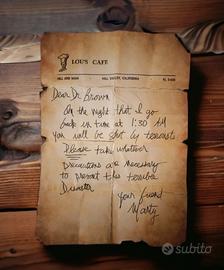 LOU'S CAFE
HILL AND MAIN HILL VALLEY, CALIFORNIA
Dear Dr. Brown
On the night that I go
back in time at 1:30 AM
you will be shot by terrorists
Please take whatever
precautions are necessary
to prevent this terrible
Disaster
Your friend
Marty
subito